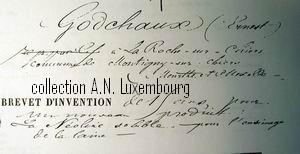 Godchaux (Ernest)
à La Roche-sur-Chiers
commune de Montigny-sur-Chiers
Meurthe et Moselle
collection A.N. Luxembourg
BREVET D'INVENTION de 15 ans, pour
un nouveau produit :
La Néoléine soluble pour l'ensimage
de la laine